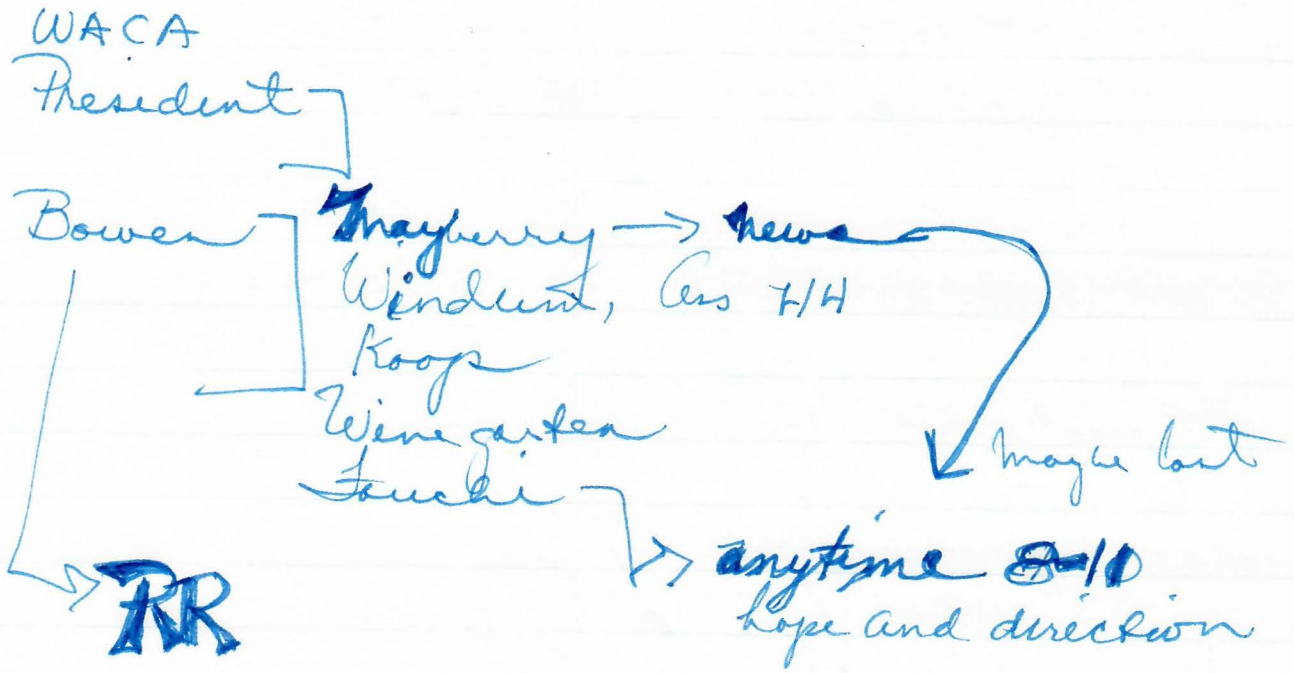 WACA
President
Bowen
Mayberry → news
Windum, Ass 7/H
Koops
Winegarten
Fauchi
maybe last
RR
anytime 8-10
hope and direction